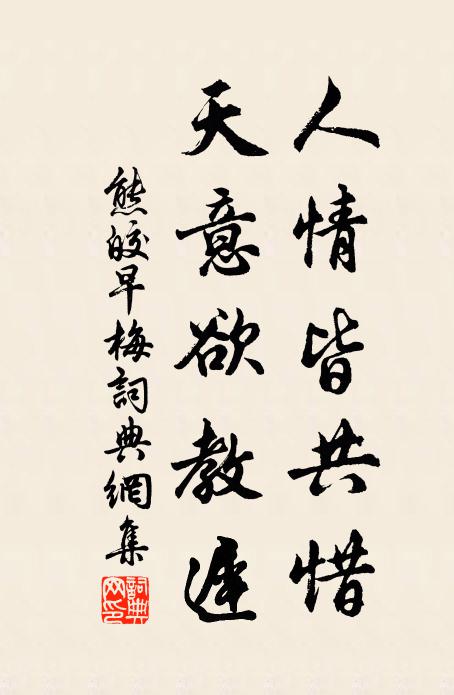 人情皆共惜
天意欲教遲
熊皎早梅詞典網集
詞典网印